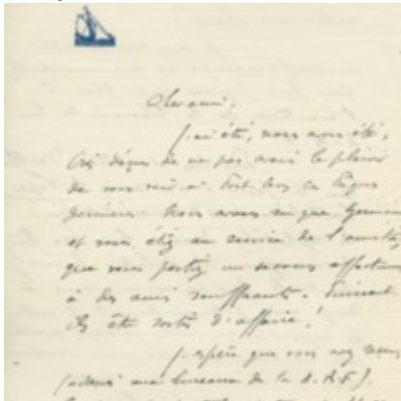 Cher ami,
J'ai été, nous avons été,
très déçus de ne pas avoir le plaisir
de vous voir ici tous ces
derniers. Nous avons su que Germaine
et vous étiez au service de l'amitié,
que vous portiez un secours affectueux
à des amis souffrants. Puissent-
ils être sortis d'affaire !
J'espère que vous avez
aux bureaux de la N.R.F.),